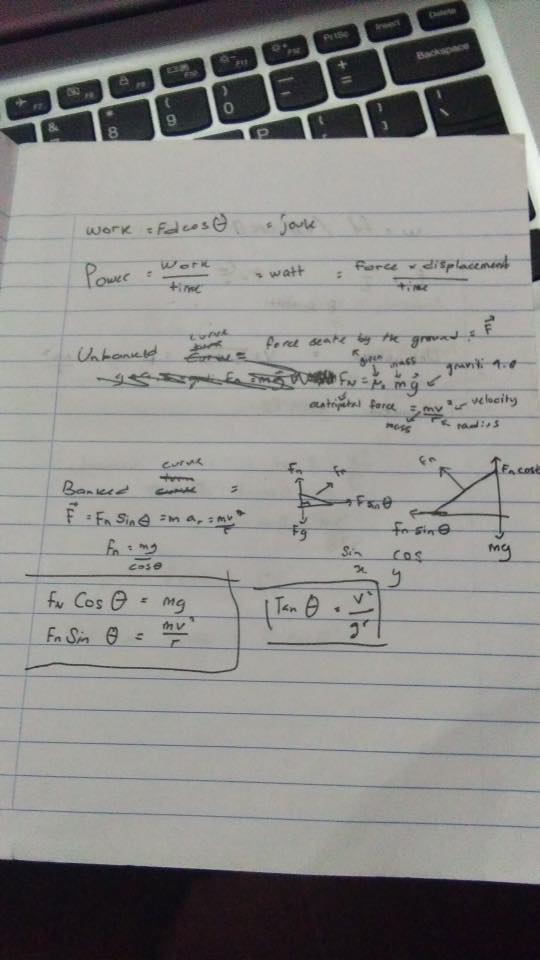 F7 F8 F9 F10 F11 F12 PrtSc Insert Delete
& * 8 ( 9 ) 0 _ - + = Backspace
P { [ } ] | \
work = Fd cos θ = joule
Power = work / time = watt = force × displacement / time
Unbanked curve = force by the ground = F⃗
given mass graviti 9.8
F_N = μs m g⃗
centripetal force = mv² / r velocity
mass radius
Banked curve =
turn
F⃗ = Fn Sin θ = m ar = mv² / r
Fn = mg / cos θ
Fn Fn F sin θ Fg
Fn Fn cos θ
Fn sin θ mg
sin cos
x y
F_N Cos θ = mg
Fn Sin θ = mv² / r
Tan θ = v² / gr